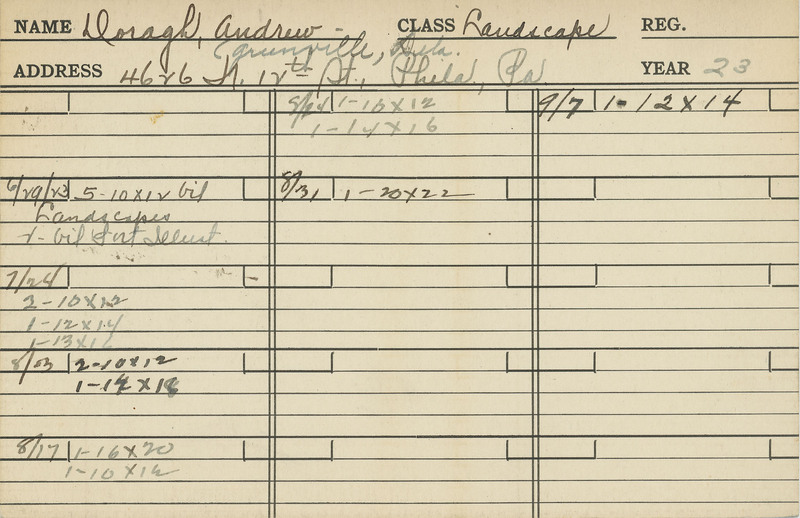 NAME Doragh, Andrew - CLASS Landscape REG.
ADDRESS 4626 N. 12th St., Phila., Pa. YEAR 23
8/24 1-10x12 9/7 1-12x14
1-14x16
6/29/23 5-10x12 Oil 8/31 1-20x22
Landscapes
Oil Illust.
7/24
2-10x12
1-12x14
1-13x16
8/3 2-10x12
1-14x18
8/17 1-16x20
1-10x12